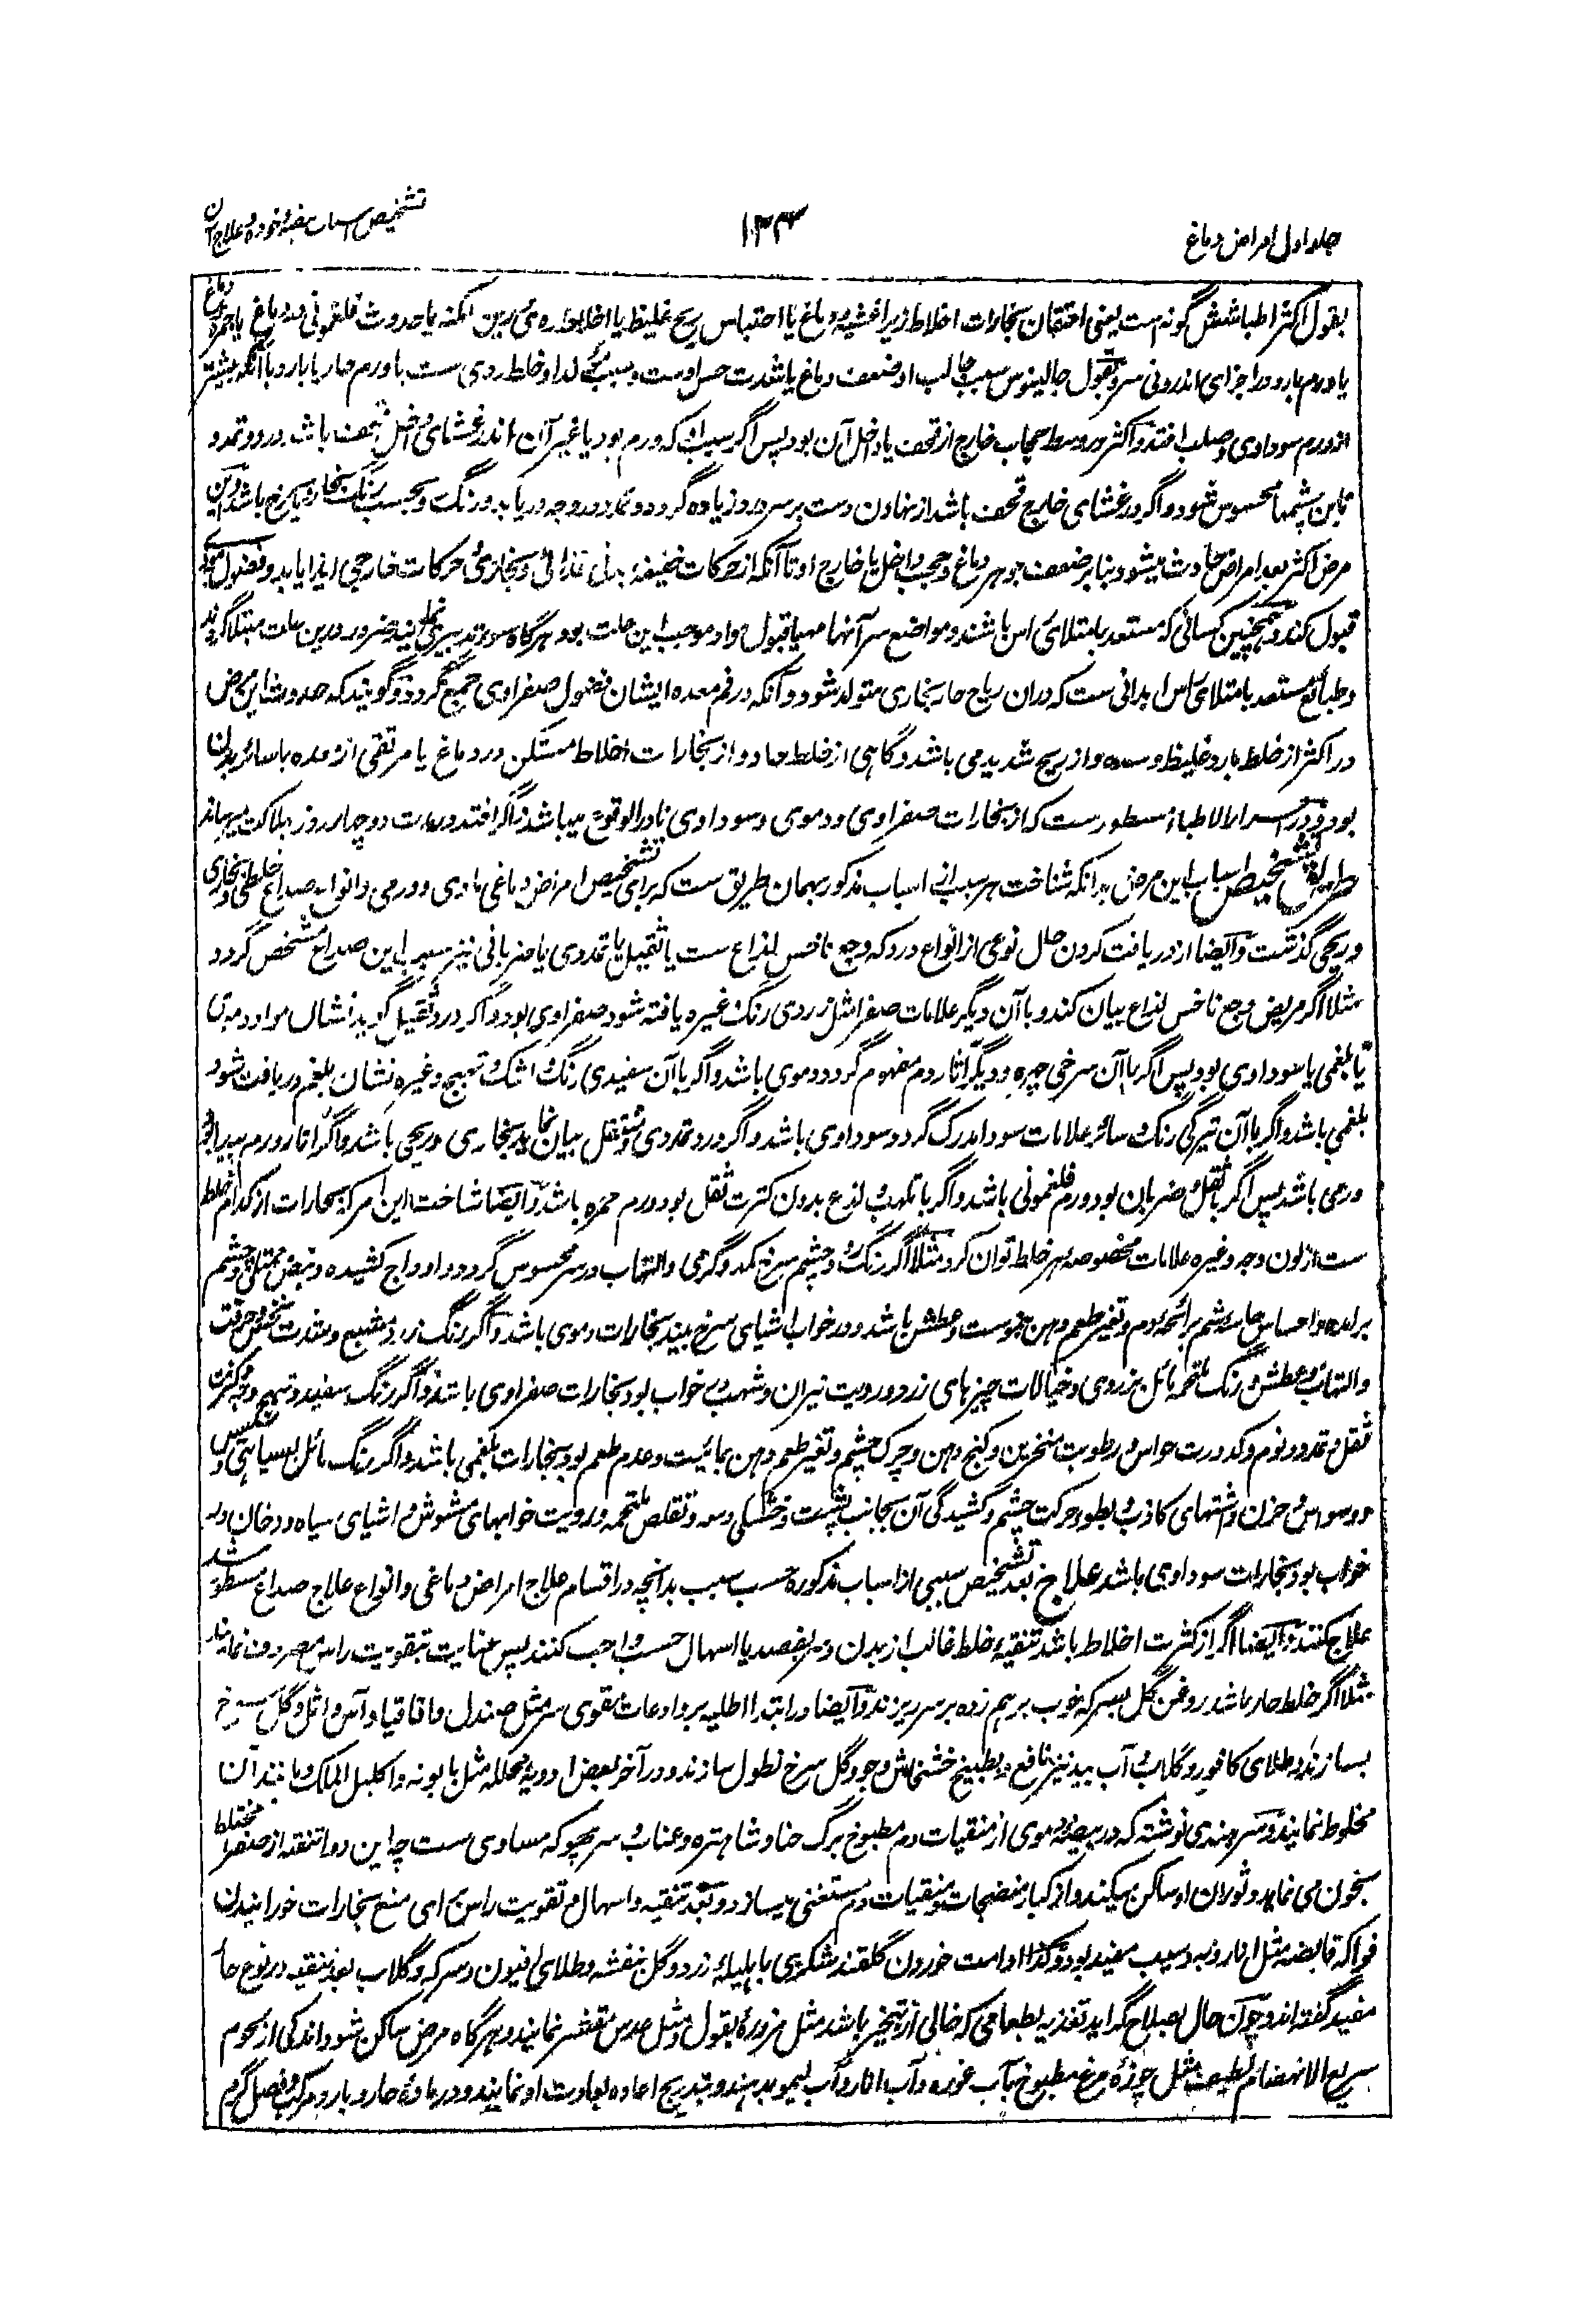 جلد اول امراض دماغ
۱۳۳
تشخیص اسباب بیضه و خوده و علاج آن
بقول اکثر اطبا شش گونه است یعنی احتقان بخارات اخلاط زیر اغشیه دماغ یا احتباس ریح غلیظ یا اخلاط ردی درین امکنه یا حدوث فلغمونی در دماغ یا حمره دماغ
یا ورم بارد در اجزای اندرونی سر و بقول جالینوس سبب جالب او ضعف دماغ یا شدت حس اوست و سبب مولد او خلط ردی ست یا ورم حار یا بارد یا آنکه بیشتر
از ورم سوداوی صلب افتد و اکثر در وسط حجاب خارج از قحف یا داخل آن بود پس اگر سبب که ورم بود یا غیر آن اندر غشای داخل قحف باشد درد و تمدد
تا بن چشمها محسوس شود و اگر در غشای خارج قحف باشد از نهادن دست بر سر درد زیاده گردد و تمدد در وجه دریابد و رنگ و بحسب رنگ بخار و یا سرخ باشد و این
مرض اکثر بعد امراض حادث میشود بنابر ضعف جوهر دماغ و حجب داخل یا خارج او تا آنکه از حرکات خفیفه بدنی غذائی و بخاری و حرکات خارجی ایذا یابد و فضول موذی
قبول کند و همچنین کسانی که مستعد بابتلای اس باشند و مواضع سر آنها مهیا قبول مواد موجب این علت بود هرگاه سوء تدبیری نمایند ضرور درین علت مبتلا گردند
و طبائع مستعد بابتلای اس ابدانی ست که دران ریاح حار بخاری متولد شود و آنکه در فم معده ایشان فضول صفراوی جمع گردد و گویند که حدوث این مرض
در اکثر از خلط بارد غلیظ و سده و از ریح شدید می باشد و گاهی از خلط حاد و از بخارات اخلاط متمکن در دماغ یا مرتقی از معده یا سائر بدن
بود و در اسرار الاطباء مسطور ست که از بخارات صفراوی و دموی و سوداوی نادر الوقوع میباشد و اگر افتد در مدت دو چهار روز بهلاکت میرساند
طریق تشخیص اسباب این مرض بدانکه شناخت هر سبب از اسباب مذکور بهمان طریق ست که برای تشخیص امراض دماغی مادی و ورمی و انواع صداع خلطی و بخاری
و ریحی گذشت و ایضا از دریافت کردن حال نوعی از انواع درد که وجع ناخس لذاع ست یا ثقیل یا تمددی یا ضربانی نیز سبب این صداع مشخص گردد
مثلا اگر مریض وجع ناخس لذاع بیان کند و با آن دیگر علامات صفرا مثل زردی رنگ غیره یافته شود صفراوی بود و اگر درد ثقیل گوید نشان مواد دموی
یا بلغمی یا سوداوی بود پس اگر با آن سرخی چهره و دیگر آثار دم مفهوم گردد دموی باشد و اگر با آن سفیدی رنگ و اشک و تهبج وغیره نشان بلغم دریافت شود
بلغمی باشد و اگر با آن تیرگی رنگ و سائر علامات سودا مدرک گردد سوداوی باشد و اگر درد تمددی و ثقل بیان نماید بخاری و ریحی باشد و اگر آثار ورم پیدا بود
ورمی باشد پس اگر با ثقل و ضربان بود ورم فلغمونی باشد و اگر با تلهب و لذع بدون کثرت ثقل بود ورم حمره باشد و ایضا شناخت این امر که بخارات از کدام خلط
است از لون وجه وغیره علامات مخصوصه بهر خلط توان کرد مثلا اگر رنگ رو و چشم سرخ بود و گرمی و التهاب در سر محسوس گردد و اوداج کشیده و نبض ممتلی و چشم
برآمده و احساس حاسه شم برائحه دم و تغیر طعم دهن بحموضت و عطش باشد و در خواب اشیای سرخ بیند بخارات دموی باشد و اگر رنگ زرد مشبع و شدت نخس و حرقت
و التهاب و عطش و رنگ ملتحمه مائل بزردی و خیالات چیزهای زرد و رویت نیران و شهب و بی خواب بود بخارات صفراوی باشد و اگر رنگ سفید و تهبج وجه و کثرت
ثقل و تمدد و نوم و کدورت حواس و رطوبت منخرین و کنج دهن و چرک چشم و تغیر طعم دهن بمائیت و عدم طعم بود بخارات بلغمی باشد و اگر رنگ مائل بسیاهی و
و وسواس و حزن و اشتهای کاذب و بطوء حرکت چشم و کشیدگی آن بجانب پشت و خشکی و سده و تقلص ملتحمه و رویت خوابهای مشوش و اشیای سیاه و دخان در
خواب بود بخارات سوداوی باشد علاج بعد تشخیص سببی از اسباب مذکوره حسب سبب بدانچه در اقسام علاج امراض دماغی و انواع علاج صداع مسطور شد
علاج کنند و ایضا اگر از کثرت اخلاط باشد تنقیه خلط غالب از بدن و سر بفصد یا اسهال حسب واجب کنند پس عنایت بتقویت راس مصروف نمایند
مثلا اگر خلط حار باشد روغن گل بسرکه خوب برهم زده بر سر ریزند و ایضا در ابتدا اطلیه بر و ادعات مقوی سر مثل صندل و اقاقیا و آس و اثل و گل سرخ
بسازند و طلای کافور و گلاب و آب بید نیز نافع و بطبیخ خشخاش و جو و گل سرخ نطول سازند و در آخر بعض ادویه محلله مثل بابونه و اکلیل الملک و مانند آن
مخلوط نمایند و سرهندی نوشته که در بیضه دموی از منقیات دم مطبوخ برگ حنا و شاهتره و عناب و سرپهوکه مساوی ست چه این دوا تنقیه از صفرا مختلط
بخون می نماید و ثوران او ساکن میکند و از کبار منضجات و منقیات دم مستغنی میسازد و بعد تنقیه و اسهال و تقویت راس برای منع بخارات خورانیدن
فواکه قابضه مثل انار و به و سیب مفید بود و کذا ادامت خوردن گلقند شکری با هلیله زرد و گل بنفشه و طلای افیون و سرکه و گلاب بعد تنقیه در نوع حار
مفید گفته اند و چون حال بصلاح گراید تغذیه بطعامی که خالی از تبخیر باشد مثل مزوره بقول و مثل عدس مقشر نمایند و هرگاه مرض ساکن شود اندکی از لحوم
سریع الانهضام لطیف مثل چوزه مرغ مطبوخ بآب غوره و آب انار و آب لیمو بدهند و بتدریج اعاده بعادت او نمایند و در ماده حار و بارد مرکب و فصل گرم